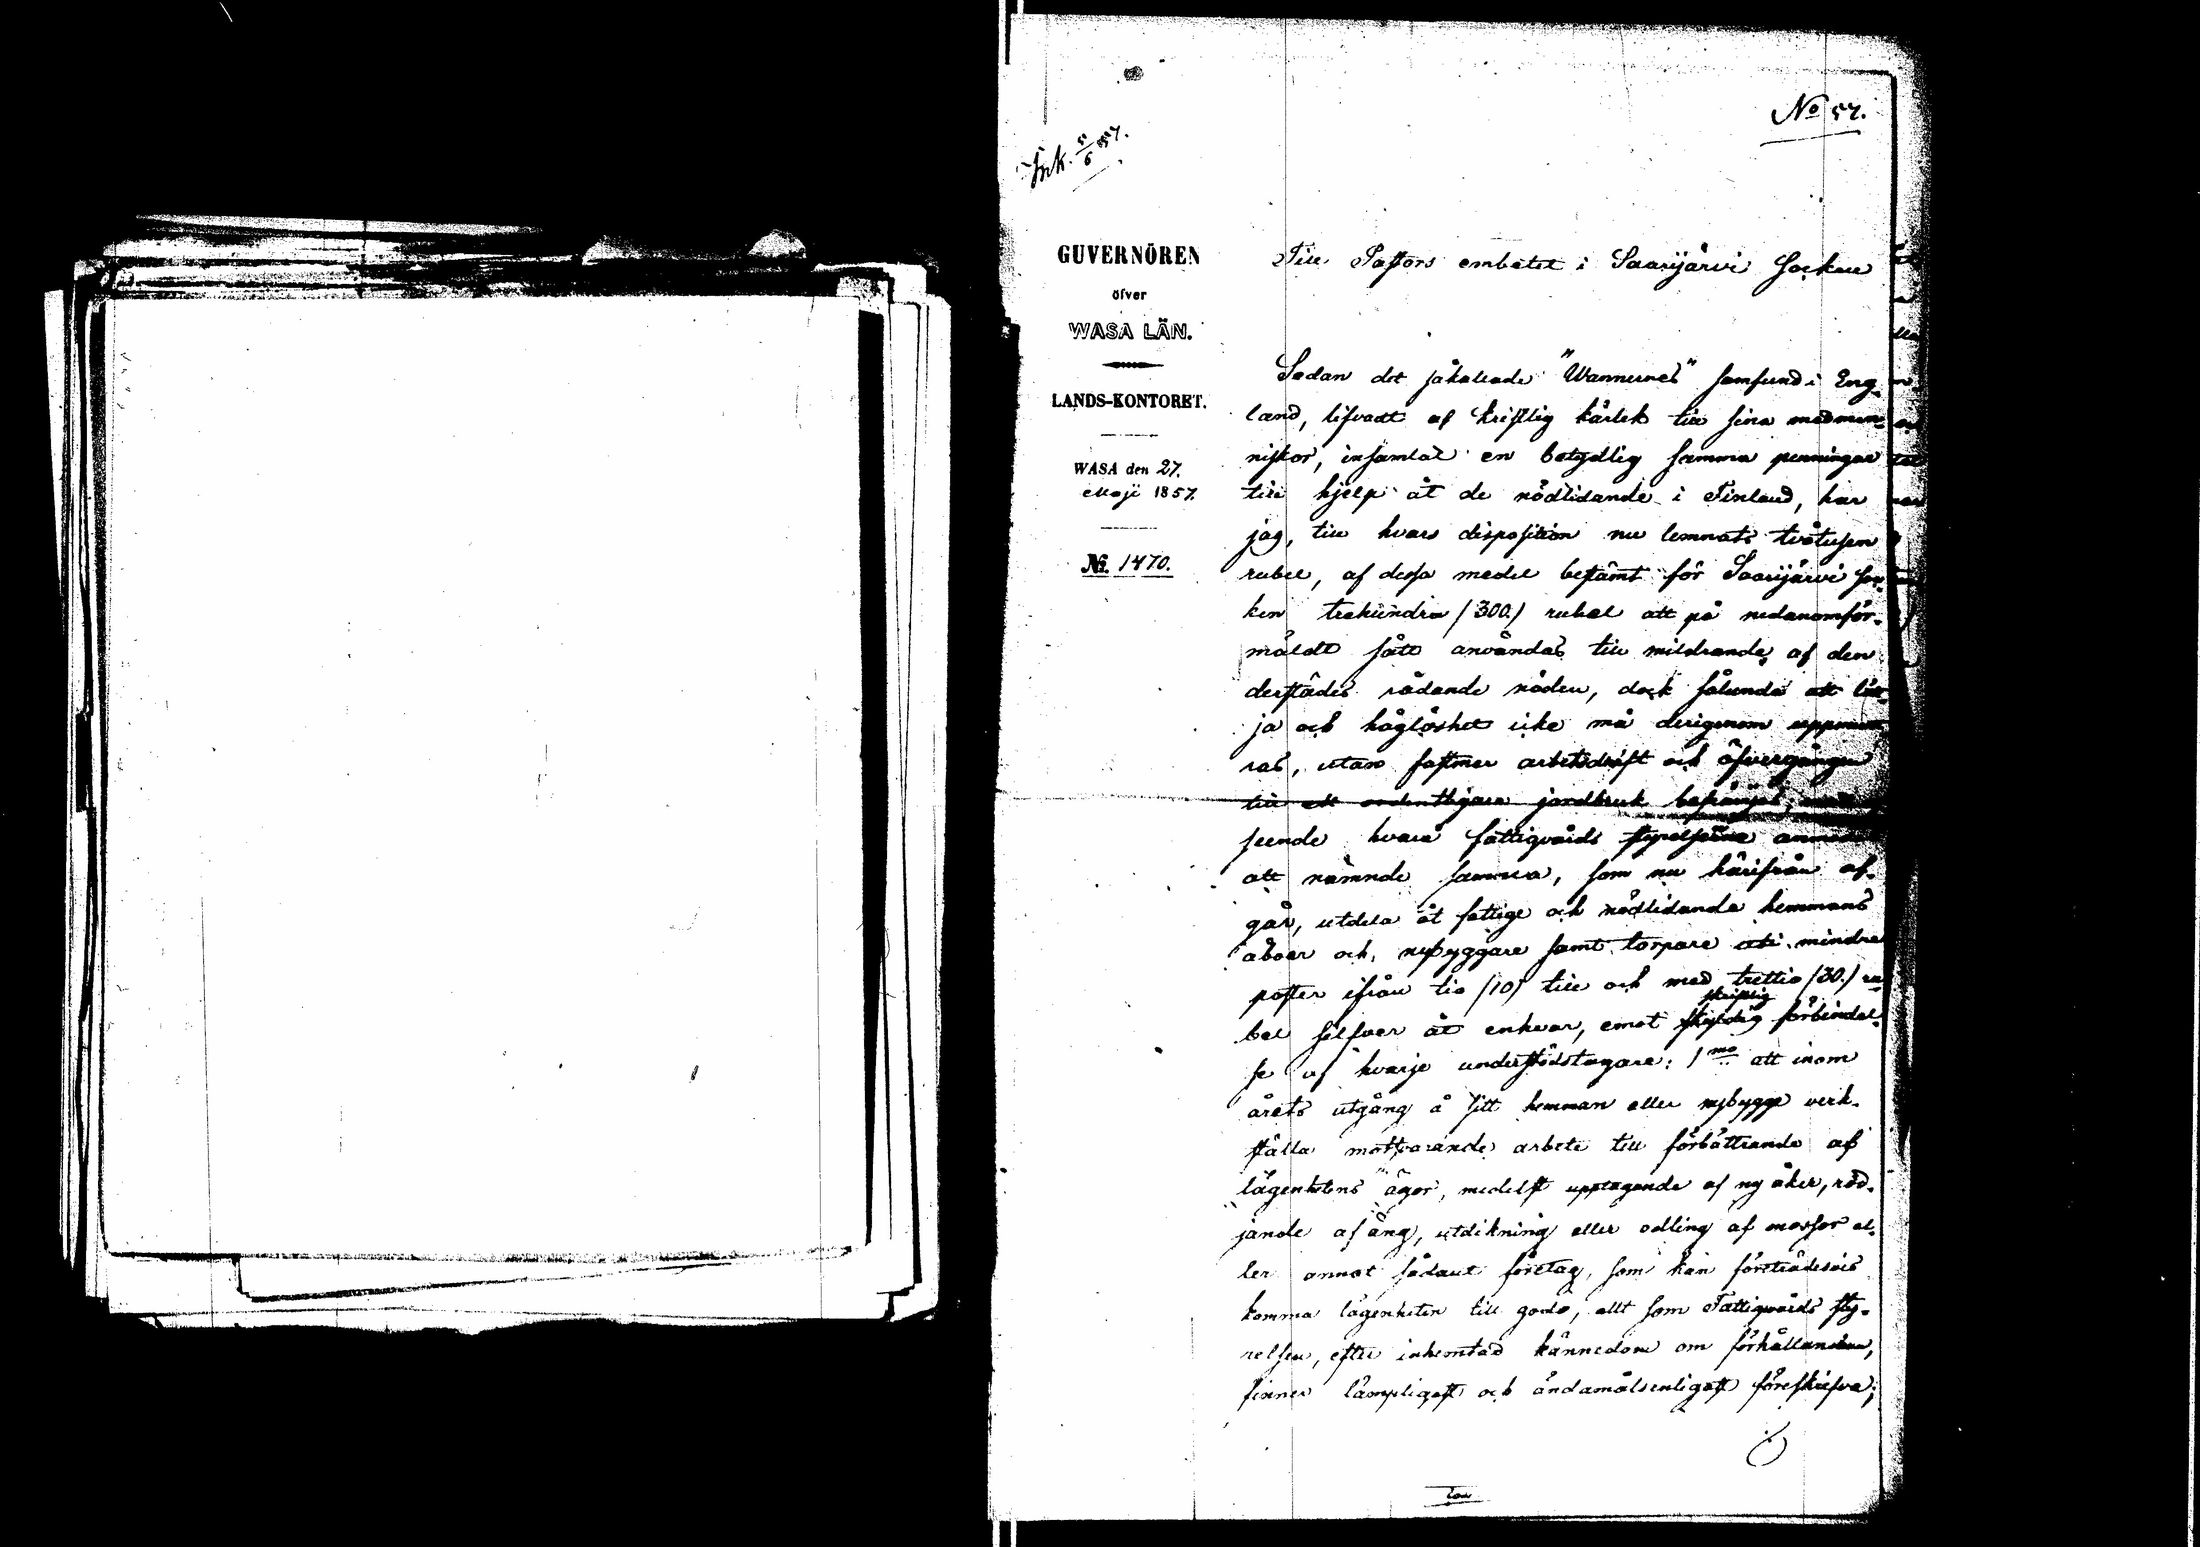 No 57.
Ink. 5/6 857.
GUVERNÖREN
öfver
WASA LÄN.
LANDS-KONTORET.
WASA den 27.
Maji 1857.
No. 1470.
Till Pastors embetet i Saarijärvi Socken
Sedan det såkallade "Wännernes" samfund i Eng-
land, lifvadt af kristlig kärlek till sina medmen-
niskor, insamlat en betydlig summa penningar
till hjelp åt de nödlidande i Finland, har
jag, till hvars disposition nu lemnats tvåtusen
rubel, af dessa medel bestämt för Saarijärvi soc-
ken trehundra /300./ rubel att på nedanomför-
mäldt sätt användas till mildrande af den
derstädes rådande nöden, dock sålunda att lät-
ja och håglöshet icke må derigenom uppmunt-
ras, utan fastmer arbetsdrift och öfvergången
till ett ordentligare jordbruk befrämjas,
seende hvarå fattigvårds styrelserne
att nämnde summa, som nu härifrån af-
går, utdela åt fattige och nödlidande hemmans
åboer och nybyggare samt torpare uti mindre
poster ifrån tio /10/ till och med trettio /30./ ru-
bel silfver åt enhvar, emot skriftlig förbindel-
se af hvarje understödstagare: 1mo att inom
årets utgång å sitt hemman eller nybygge verk-
ställa motsvarande arbete till förbättrande af
lägenhetens ägor, medelst upptagande af ny åker, röd-
jande af äng, utdikning eller odling af mossor el-
ler annat sådant företag, som kan företrädesvis
komma lägenheten till godo, allt som Fattigvårds sty-
relsen, efter inhemtad kännedom om förhållanden,
finner lämpligast och ändamålsenligast föreskrifva;